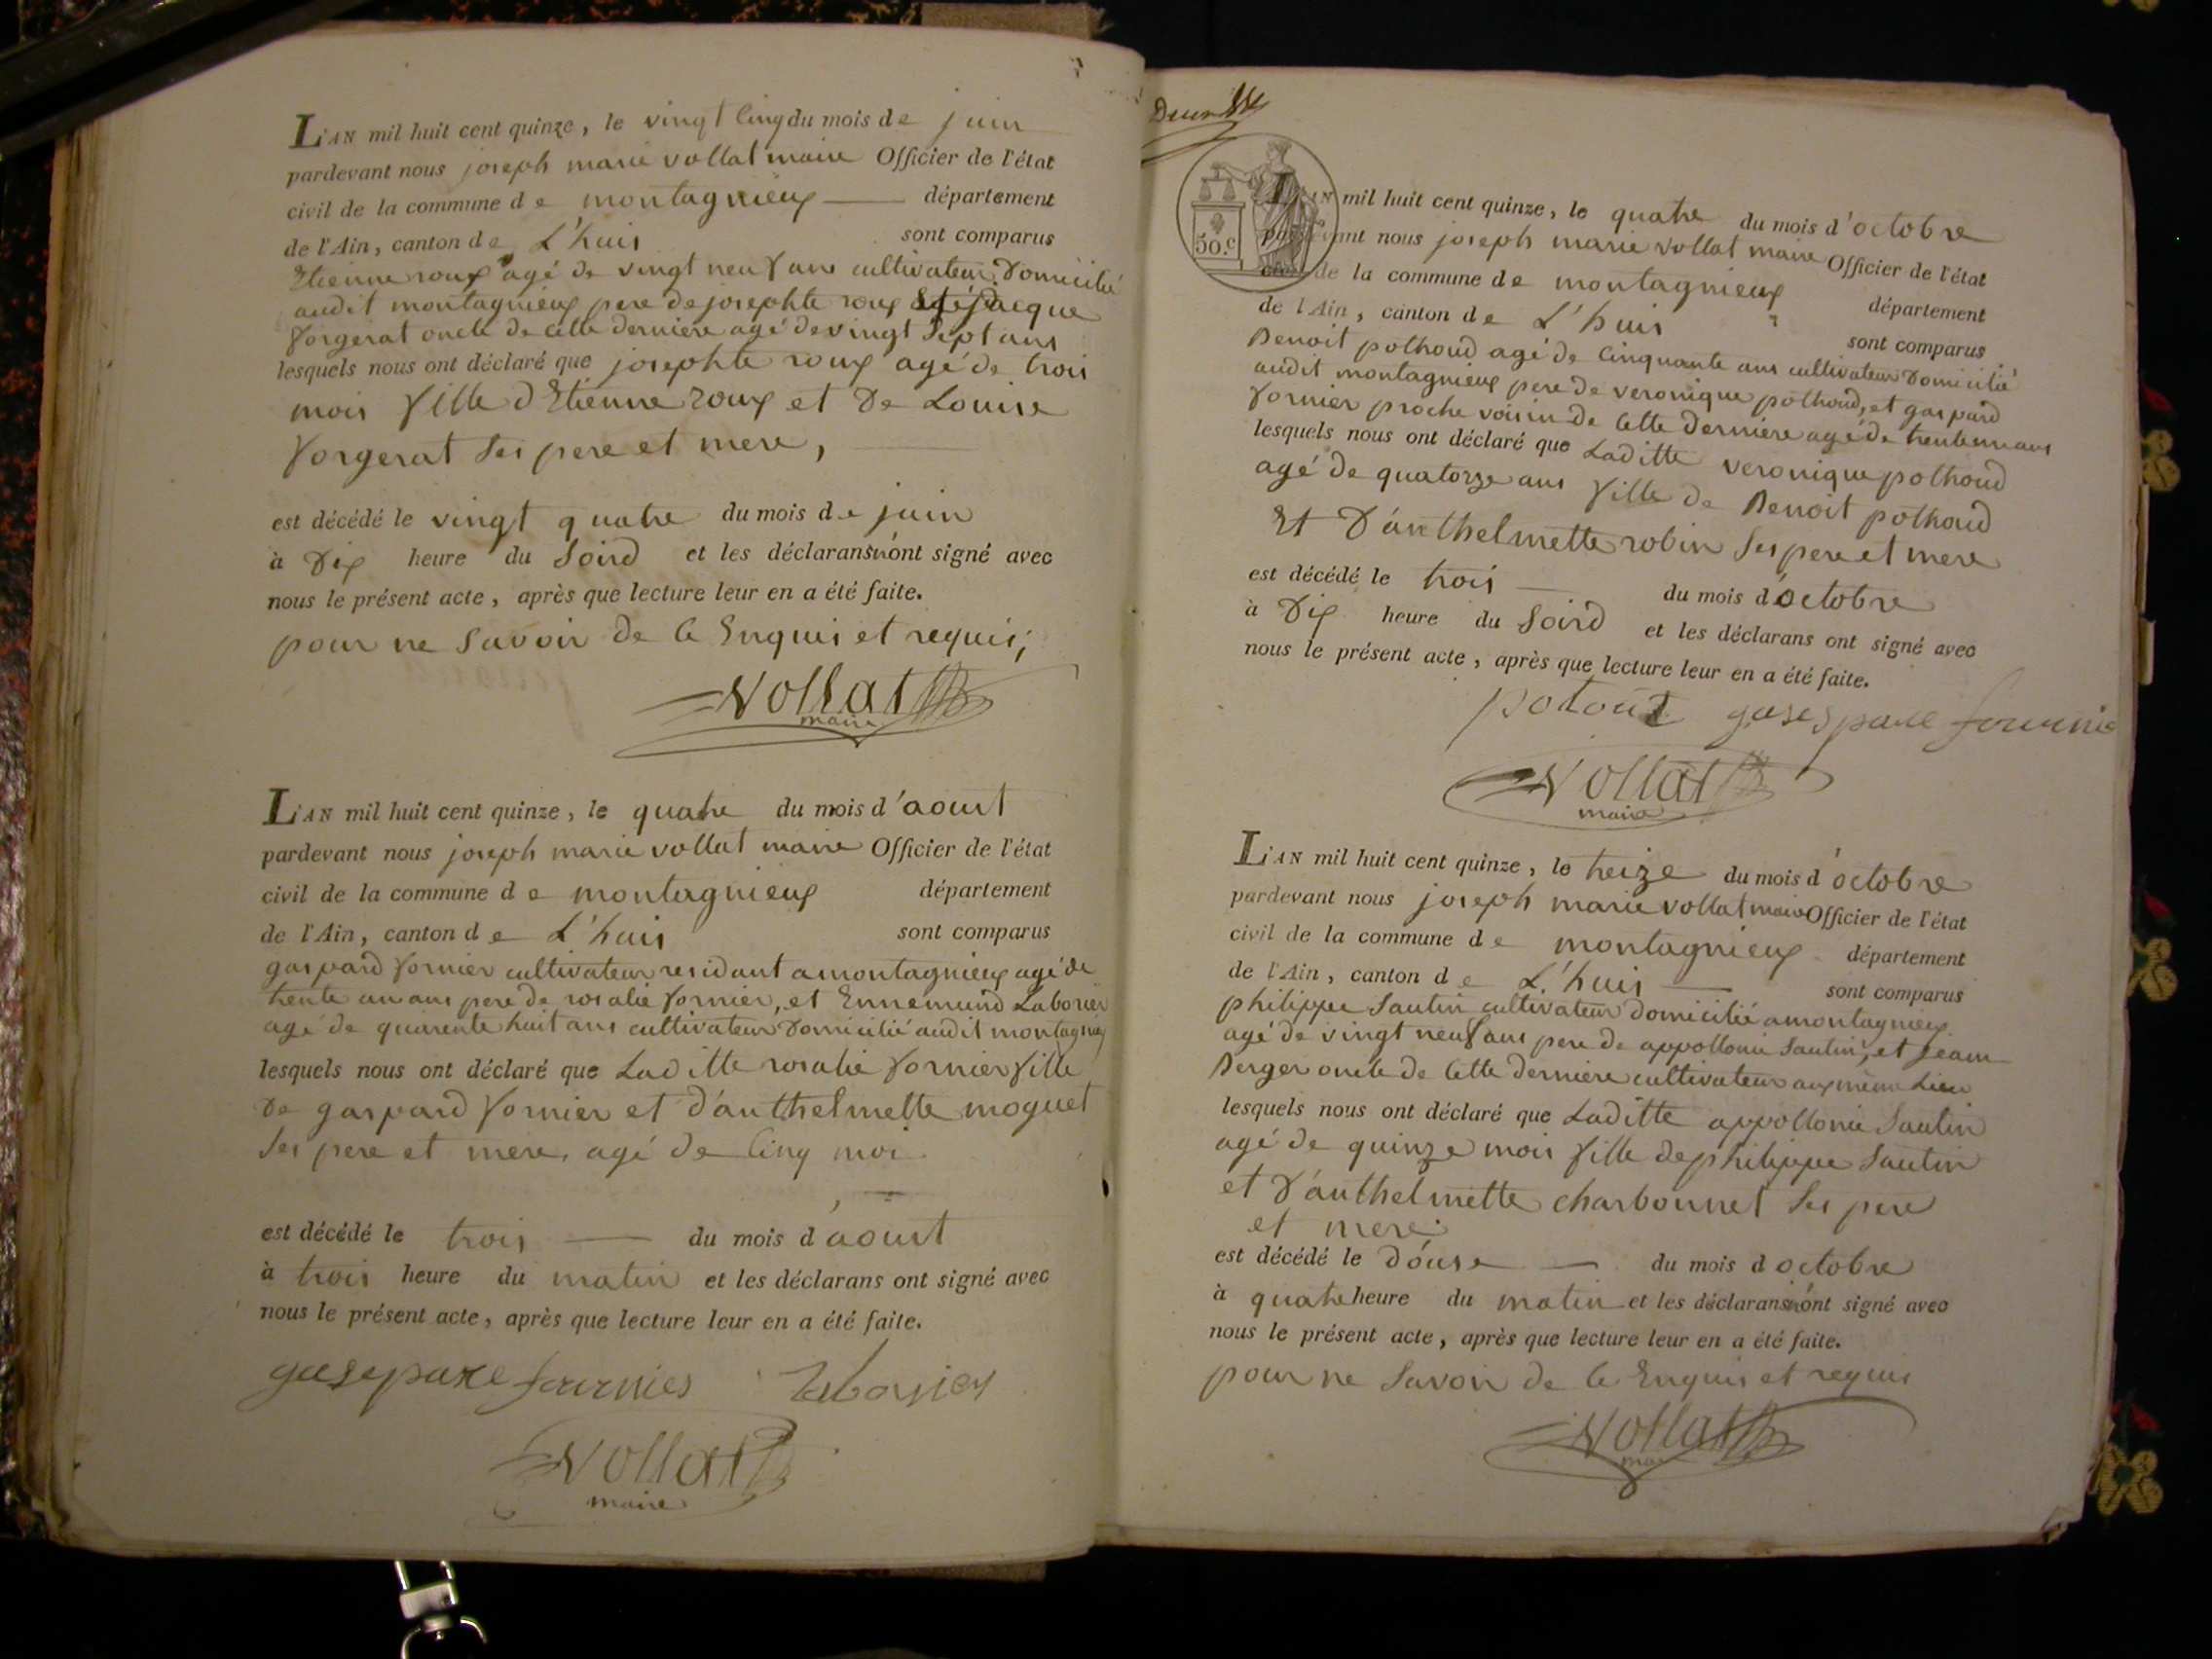 L'AN mil huit cent quinze, le vingt cinq du mois de juin
pardevant nous joseph marie vollat maire Officier de l'état
civil de la commune de montagnieux département
de l'Ain, canton de L'huis sont comparus
Etienne roux agé de vingt neuf ans cultivateur Domicilié
audit montagnieux pere de josephte roux et jacque
forgerat oncle de cette derniere agé de vingt Sept ans
lesquels nous ont déclaré que josephte roux agé de trois
mois fille d'Etienne roux et De Louise
forgerat Ses pere et mere,
est décédé le vingt quatre du mois de juin
à Dix heure du Soird et les déclarans n'ont signé avec
nous le présent acte, après que lecture leur en a été faite.
pour ne Savoir de ce Enquis et requis;
Vollat
maire
L'AN mil huit cent quinze, le quatre du mois d'aoust
pardevant nous joseph marie vollat maire Officier de l'état
civil de la commune de montagnieux département
de l'Ain, canton de L'huis sont comparus
gaspard fornier cultivateur residant a montagnieux agé de
trente un ans pere de rosalie fornier, et Ennemund Laborier
agé de quarente huit ans cultivateur Domicilié audit montagnieux
lesquels nous ont déclaré que Laditte rosalie fornier fille
De gaspard fornier et d'anthelmette moguet
Ses pere et mere, agé de Cinq moi
est décédé le trois du mois d'aoust
à trois heure du matin et les déclarans ont signé avec
nous le présent acte, après que lecture leur en a été faite.
fournier Laborier
Vollat
maire
50.c
L'AN mil huit cent quinze, le quatre du mois d'octobre
pardevant nous joseph marie vollat maire Officier de l'état
civil de la commune de montagnieux département
de l'Ain, canton de L'huis sont comparus
Benoit pothoud agé de Cinquante ans cultivateur Domicilié
audit montagnieux pere de veronique pothoud, et gaspard
fornier proche voisin de Cette derniere agé de trente un ans
lesquels nous ont déclaré que Laditte veronique pothoud
agé de quatorze ans fille de Benoit pothoud
Et D'anthelmette robin Ses pere et mere
est décédé le trois du mois d'octobre
à Dix heure du Soird et les déclarans ont signé avec
nous le présent acte, après que lecture leur en a été faite.
Vollat
maire
L'AN mil huit cent quinze, le treize du mois d'octobre
pardevant nous joseph marie vollat maire Officier de l'état
civil de la commune de montagnieux département
de l'Ain, canton de L'huis sont comparus
philippe Sautin cultivateur domicilié a montagnieux
agé de vingt neuf ans pere de appollonie Sautin, et jean
Berger oncle de Cette derniere cultivateur aux même Lieu
lesquels nous ont déclaré que Laditte appollonie Sautin
agé de quinze mois fille de philippe Sautin
et D'anthelmette charbonnet Ses pere
et mere.
est décédé le douse du mois d'octobre
à quatre heure du matin et les déclarans n'ont signé avec
nous le présent acte, après que lecture leur en a été faite.
pour ne Savoir de ce Enquis et requis
Vollat